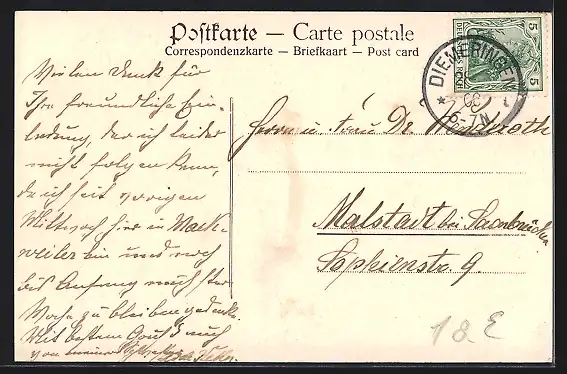 Postkarte — Carte postale
Correspondenzkarte — Briefkaart — Post card
5 5
DIEMERINGEN
6-7N
Vielen Dank für
Ihre freundliche Ein-
ladung, der ich leider
nicht folgen kann,
da ich seit vorigen
Mittwoch hier in Mack-
weiler bin und noch
bis Anfang nächster
Woche zu bleiben gedenke.
Mit bestem Gruß auch
von meiner
Herrn u Frau Dr.
Malstadt bei Saarbrücken
Sophienstr. 9.
18 E